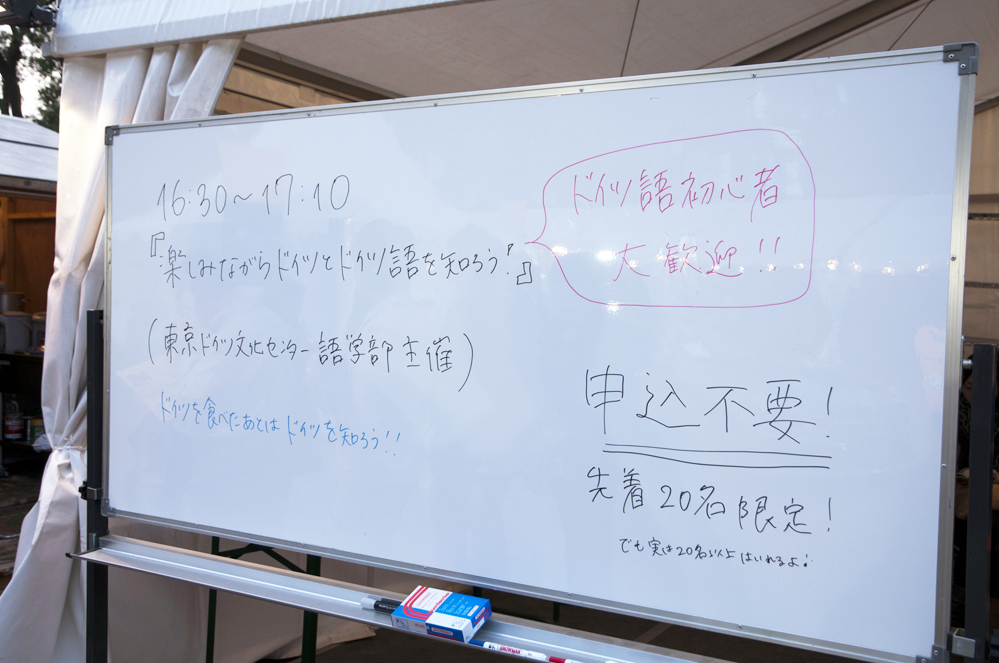 16:30~17:10
『楽しみながらドイツとドイツ語を知ろう!』
ドイツ語初心者
大歓迎!!
(東京ドイツ文化センター語学部主催)
ドイツを食べたあとはドイツを知ろう!!
申込不要!
先着20名限定!
でも実は20名以上はいれるよ!